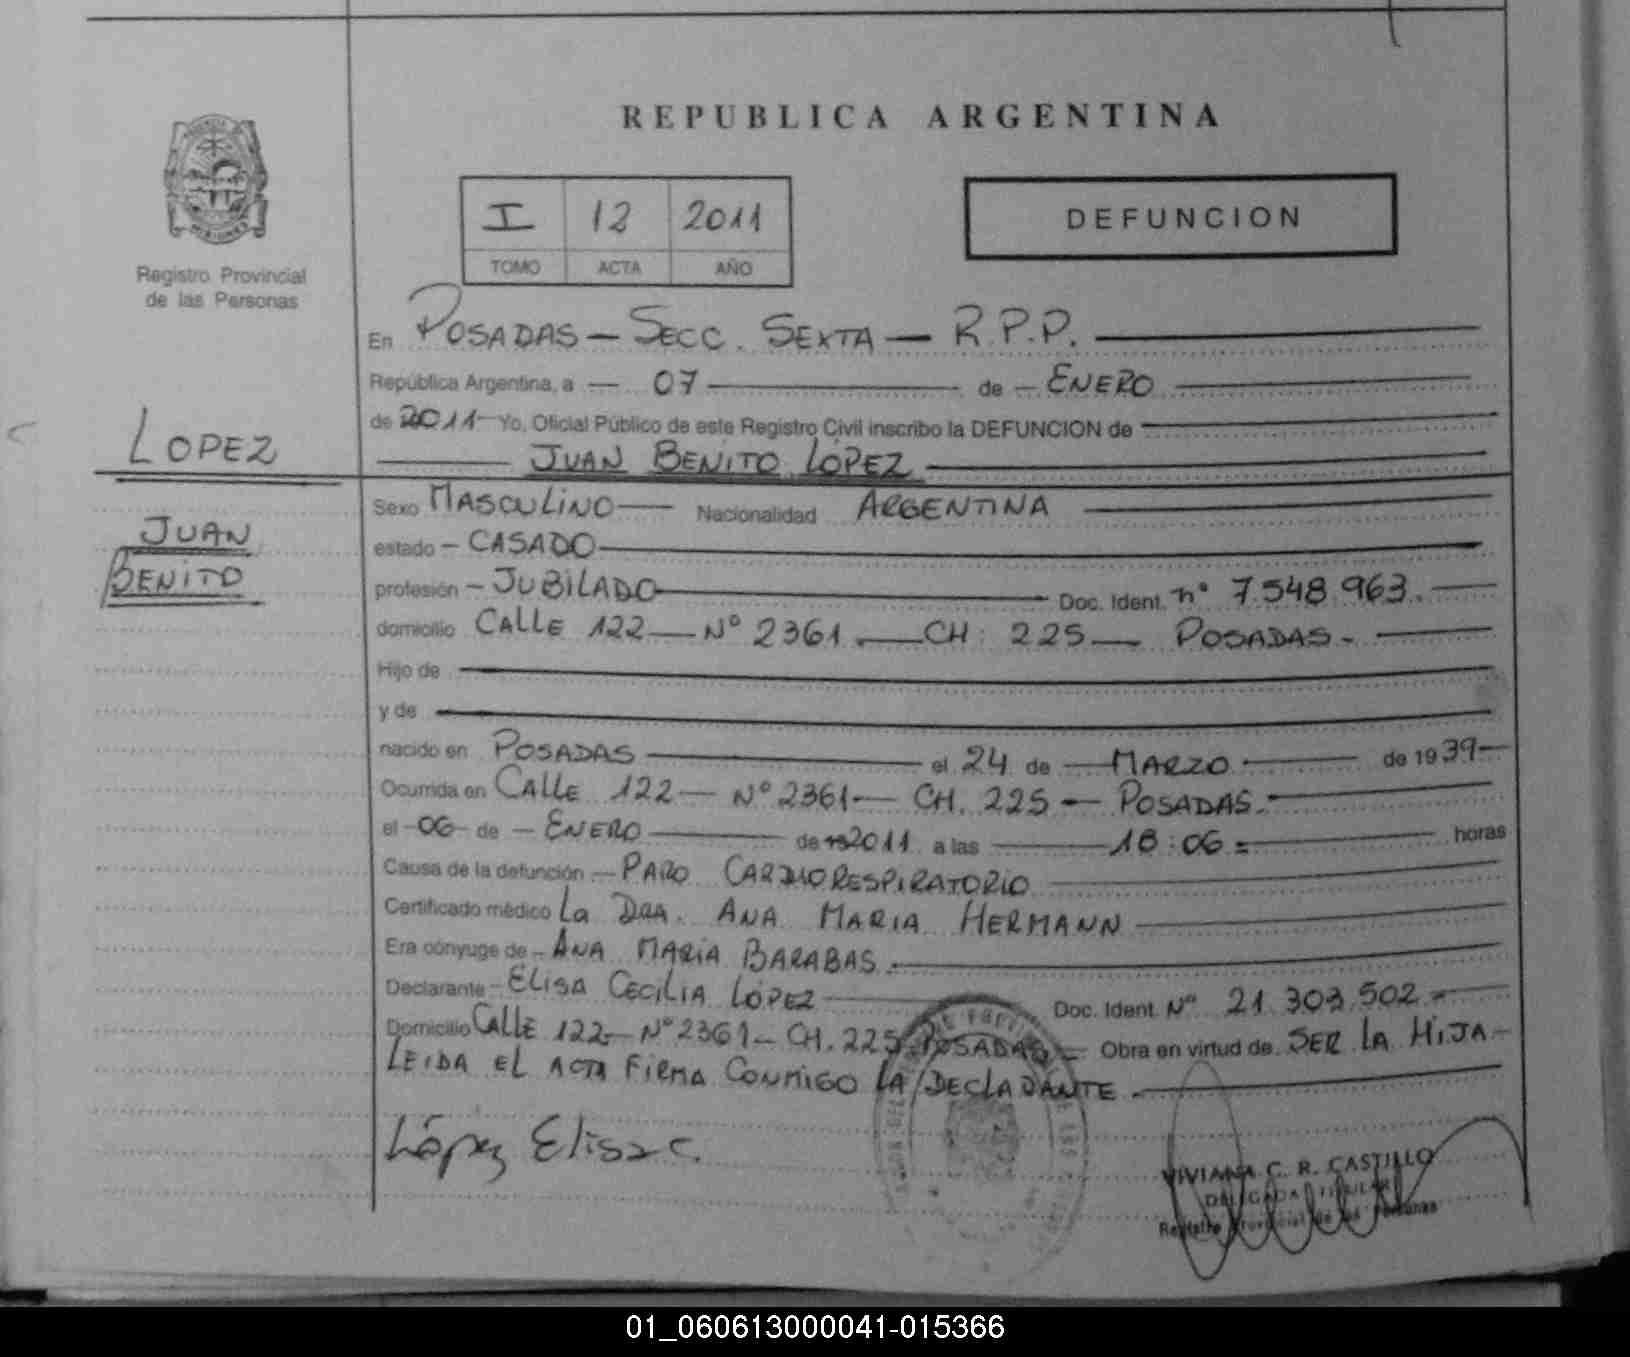 REPUBLICA ARGENTINA
I 12 2011
TOMO ACTA AÑO
DEFUNCION
Registro Provincial
de las Personas
LOPEZ
JUAN
BENITO
En POSADAS - SECC. SEXTA - R.P.P.
República Argentina, a 07 de ENERO
de 2011 Yo, Oficial Público de este Registro Civil inscribo la DEFUNCION de
JUAN BENITO LOPEZ
Sexo MASCULINO Nacionalidad ARGENTINA
estado - CASADO
profesión - JUBILADO Doc. Ident. nº 7.548.963.
domicilio CALLE 122 - Nº 2361 - CH: 225 - POSADAS -
Hijo de
y de
nacido en POSADAS el 24 de MARZO de 1939
Ocurrida en CALLE 122 - Nº 2361 - CH. 225 - POSADAS.
el 06 de ENERO de 2011 a las 18:06 = horas
Causa de la defunción - PARO CARDIORESPIRATORIO
Certificado médico La DRA. ANA MARIA HERMANN
Era cónyuge de - ANA MARIA BARABAS.
Declarante - ELISA CECILIA LÓPEZ Doc. Ident. Nº 21.303.502 -
Domicilio CALLE 122 - Nº 2361 - CH. 225 POSADAS - Obra en virtud de SER LA HIJA -
LEIDA EL ACTA FIRMA CONMIGO LA DECLARANTE.
López Elisa C.
VIVIANA C. R. CASTILLO
DELEGADA TITULAR
Registro Provincial de las Personas
01_060613000041-015366